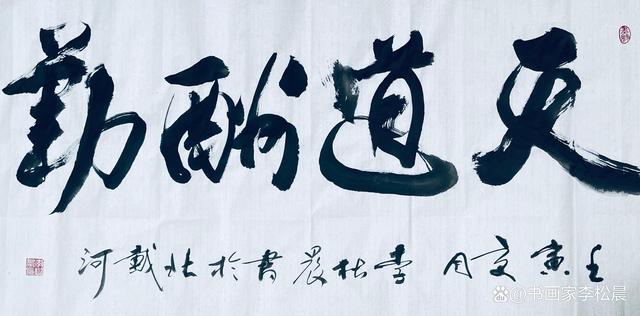 天道酬勤
壬寅夏月 李松晨書於北戴河
书画家李松晨